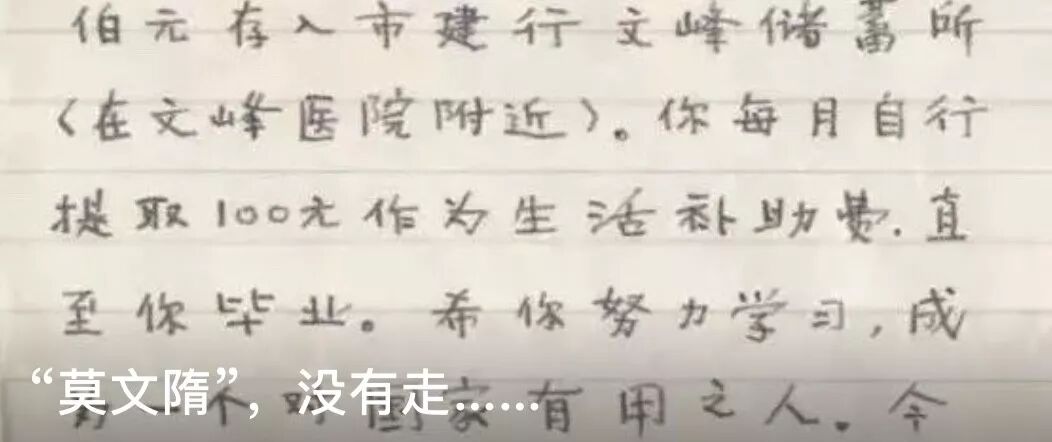 佰元存入市建行文峰储蓄所
(在文峰医院附近)。你每月自行
提取100元作为生活补助费.直
至你毕业。希你努力学习,成
国家有用之人。今
“莫文隋”,没有走……